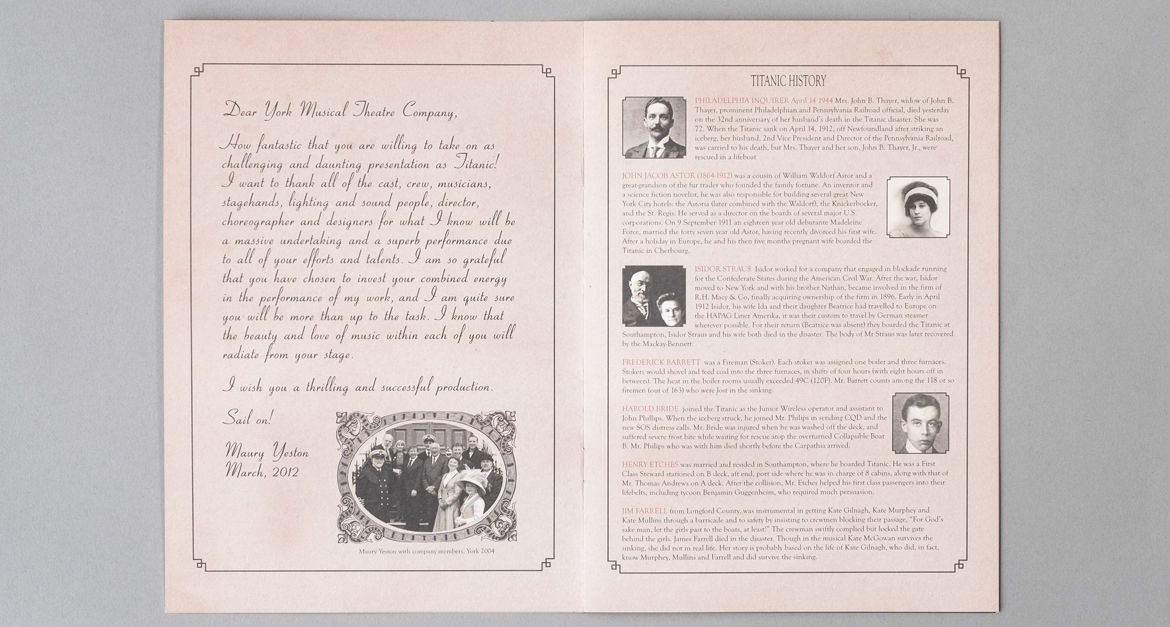 Dear York Musical Theatre Company,
How fantastic that you are willing to take on as
challenging and daunting presentation as Titanic!
I want to thank all of the cast, crew, musicians,
stagehands, lighting and sound people, director,
choreographer and designers for what I know will be
a massive undertaking and a superb performance due
to all of your efforts and talents. I am so grateful
that you have chosen to invest your combined energy
in the performance of my work, and I am quite sure
you will be more than up to the task. I know that
the beauty and love of music within each of you will
radiate from your stage.
I wish you a thrilling and successful production.
Sail on!
Maury Yeston
March, 2012
Maury Yeston with company members, York 2004
TITANIC HISTORY
PHILADELPHIA INQUIRER April 14 1944 Mrs. John B. Thayer, widow of John B.
Thayer, prominent Philadelphian and Pennsylvania Railroad official, died yesterday
on the 32nd anniversary of her husband's death in the Titanic disaster. She was
72. When the Titanic sank on April 14, 1912, off Newfoundland after striking an
iceberg, her husband, 2nd Vice President and Director of the Pennsylvania Railroad,
was carried to his death, but Mrs. Thayer and her son, John B. Thayer, Jr., were
rescued in a lifeboat
JOHN JACOB ASTOR (1864-1912) was a cousin of William Waldorf Astor and a
great-grandson of the fur trader who founded the family fortune. An inventor and
a science fiction novelist, he was also responsible for building several great New
York City hotels: the Astoria (later combined with the Waldorf), the Knickerbocker,
and the St. Regis. He served as a director on the boards of several major U.S.
corporations. On 9 September 1911 an eighteen year old debutante Madeleine
Force, married the forty seven year old Astor, having recently divorced his first wife.
After a holiday in Europe, he and his then five months pregnant wife boarded the
Titanic in Cherbourg.
ISIDOR STRAUS Isidor worked for a company that engaged in blockade running
for the Confederate States during the American Civil War. After the war, Isidor
moved to New York and with his brother Nathan, became involved in the firm of
R.H. Macy & Co, finally acquiring ownership of the firm in 1896. Early in April
1912 Isidor, his wife Ida and their daughter Beatrice had travelled to Europe on
the HAPAG Liner Amerika, it was their custom to travel by German steamer
wherever possible. For their return (Beatrice was absent) they boarded the Titanic at
Southampton, Isidor Straus and his wife both died in the disaster. The body of Mr Straus was later recovered
by the Mackay-Bennett.
FREDERICK BARRETT was a Fireman (Stoker). Each stoker was assigned one boiler and three furnaces.
Stokers would shovel and feed coal into the three furnaces, in shifts of four hours (with eight hours off in
between). The heat in the boiler rooms usually exceeded 49C (120F). Mr. Barrett counts among the 118 or so
firemen (out of 163) who were lost in the sinking.
HAROLD BRIDE joined the Titanic as the Junior Wireless operator and assistant to
John Phillips. When the iceberg struck, he joined Mr. Philips in sending CQD and the
new SOS distress calls. Mr. Bride was injured when he was washed off the deck, and
suffered severe frost bite while waiting for rescue atop the overturned Collapsible Boat
B. Mr. Philips who was with him died shortly before the Carpathia arrived.
HENRY ETCHES was married and resided in Southampton, where he boarded Titanic. He was a First
Class Steward stationed on B deck, aft end, port side where he was in charge of 8 cabins, along with that of
Mr. Thomas Andrews on A deck. After the collision, Mr. Etches helped his first class passengers into their
lifebelts, including tycoon Benjamin Guggenheim, who required much persuasion.
JIM FARRELL from Longford County, was instrumental in getting Kate Gilnagh, Kate Murphey and
Kate Mullins through a barricade and to safety by insisting to crewmen blocking their passage, "For God's
sake man, let the girls past to the boats, at least!" The crewman swiftly complied but locked the gate
behind the girls. James Farrell died in the disaster. Though in the musical Kate McGowan survives the
sinking, she did not in real life. Her story is probably based on the life of Kate Gilnagh, who did, in fact,
know Murphey, Mullins and Farrell and did survive the sinking.